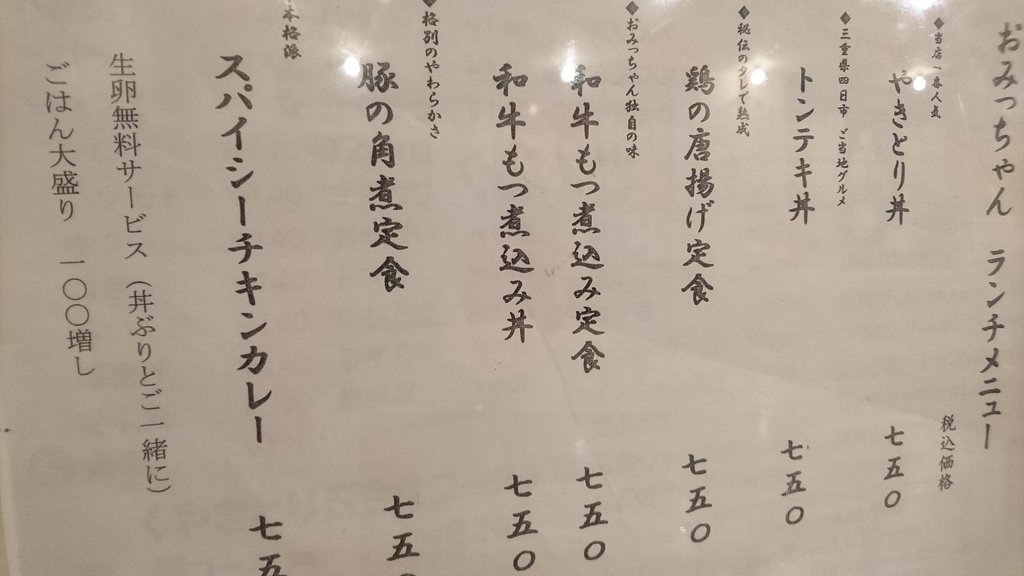 おみっちゃん ランチメニュー
税込価格
◆当店一番人気
やきとり丼 七五〇
◆三重県四日市 ご当地グルメ
トンテキ丼 七五〇
◆秘伝のタレで熟成
鶏の唐揚げ定食 七五〇
◆おみっちゃん独自の味
和牛もつ煮込み定食 七五〇
和牛もつ煮込み丼 七五〇
◆格別のやわらかさ
豚の角煮定食 七五〇
本格派
スパイシーチキンカレー 七五
生卵無料サービス(丼ぶりとご一緒に)
ごはん大盛り 一〇〇増し